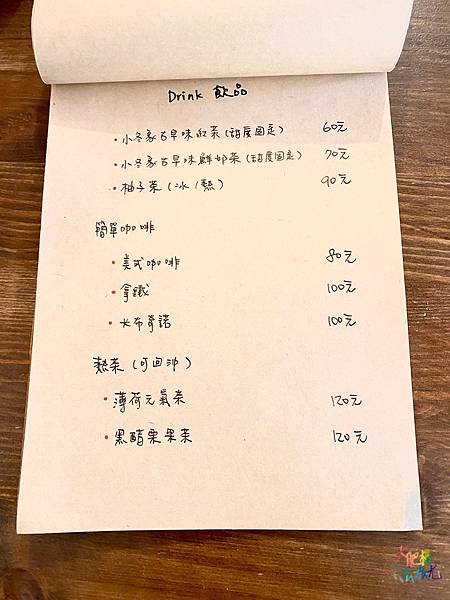 Drink 飲品
• 小冬家古早味紅茶(甜度固定) 60元
• 小冬家古早味鮮奶茶(甜度固定) 70元
• 柚子茶(冰/熱) 90元
簡單咖啡
• 美式咖啡 80元
• 拿鐵 100元
• 卡布奇諾 100元
熱茶(可回沖)
• 薄荷元氣茶 120元
• 黑醋栗果茶 120元